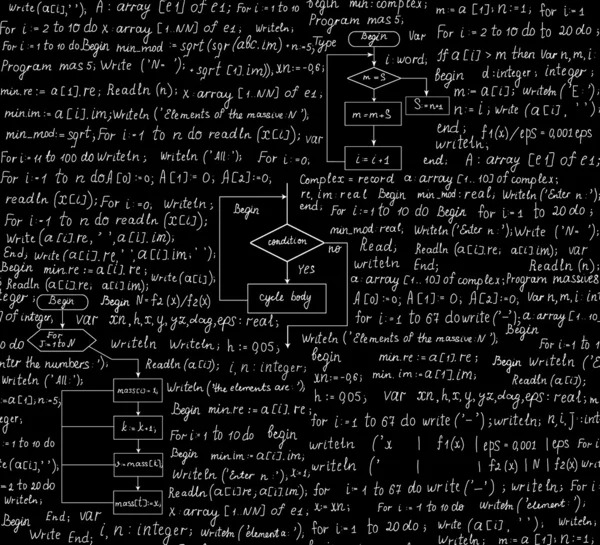 write(a[i],' '); A: array [e1] of e1; For i:=1 to 10
begin min: complex;
m:=a[1]; n:=1; for i:=1
For i:=2 to 10 do x:array [1..NN] of e1; Writeln;
Program mas 5;
For i:=2 to 10 do to 20 do;
For i:=1 to 10 do Begin min_mod:=sqrt(sqr(abc.im)
n:=5,
Type
Begin
Var
if a[i]>m then Var n,m,i:
Program mas5; Write ('N- ');
sqrt [1].im)), xn:=-0,6;
i:word;
begin d:integer; integer;
min.re:=a[1].re; Readln(n); x:array [1..NN] of e1,
m=S
m:=a[i]; writeln('E:');
min.im:=a[i].im; Writeln ('Elements of the massive: N'),
S:=n+1
n:=i; Write (a[i],' ')
min_mod:=sqrt, For i:=1 to n do readln (x[i]); var
m=m+S
end; f1(x)/eps=0,001eps
writeln;
For i:=11 to 100 do Writeln; Writeln ('All:'); For i:=0,
i=i+1
end: A: array [e1] of e1;
For i:=1 to n do A[0]:=0; A[1]:=0; A[2]:=0,
Complex=record a:array [1..10] of complex;
readln (x[i]); For i:=0, writeln;
Begin
re, im:real Begin min_mod:real; Writeln ('Enter n:');
end;
For i:=1 to 10 do Begin for i:=1 to 20 do;
For i:=1 to n do readln (x[i]);
min_mod real, Writeln ('Enter n:'); Write ('N- ');
Write (a[i].re,' ',a[i].im);
condition
no
Read, Readln (a[i].re; a[i].im); var
End; Write (a[i].re,' ',a[i].im,' ');
YES
writeln End; Readln (n);
Begin min.re:=a[i].re; Write (a[i]);
a:array [1..10] of complex; Program massive8
Readln (a[i].re, a[i].im);
cycle body
A[0]:=0; A[1]:=0, A[2]:=0, Var n,m,i:int
Begin
Begin N=f2(x)/f2(x)
for i:=1 to 67 do write('-'); a:array [1..10]
of integer; var xn,h,x,y,yz,dag,eps:real;
Writeln ('Elements of the massive: N'),
Begin
For
J=1 to N
writeln Writeln; h:=0,05,
begin min.re:=a[i].re; For i:=1 to
nter the numbers:');
Readln (a[i]); i, n: integer;
xn:=-0,6; min.im:=a[1].im; Begin Writeln ('E
Writeln ('All:');
mass[i]=x,
Writeln ('the elements are:'),
h:=0,05, Readln (a[i]);
:=a[1], n:=5;
Begin min.re:=a[i].re,
var xn,h,x,y,yz,dag,eps:real;
k:=k+1,
For i:=1 to 10 do begin
for i:=1 to 67 do write('-'); writeln; n,i,j:int
:=1 to 10 do
Begin min.im:=a[i].im,
writeln ('x | f1(x) | eps=0,001 | eps
y:=mass[k],
Writeln ('Enter n:'), x=1,
writeln (' | | f2(x) | N | f2(x)
=2 to 20 do
mass[t]:=x,
Readln (a[i].re, a[i].im); for i:=1 to 67 do write('-'); writeln; For i
Writeln;
x:array [1..NN] of e1.
For i:=1 to 10 do Writeln ('element:');
Begin End; var
Write End; i, n: integer; Writeln ('element a:'), for i:=1 to 20 do; Write (a[i],' '), writeln;
m:=a[1]; n:=1: